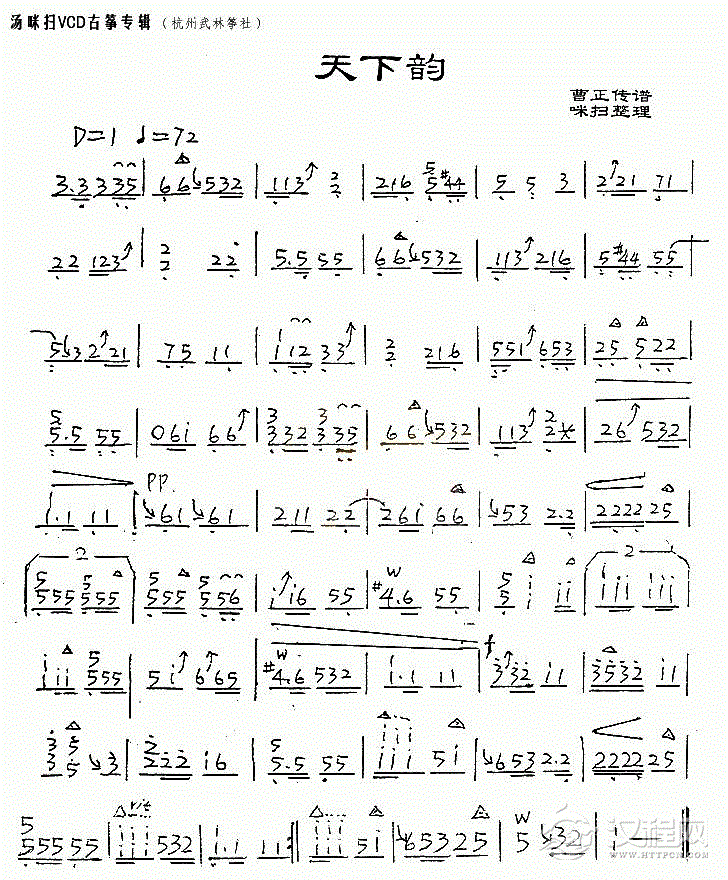 汤咪扫VCD古筝专辑（杭州武林筝社）
天下韵
曹正传谱
咪扫整理
D=1 ♩=72
3.3 3 35 | 66 532 | 113 2 2 | 216 5 5 #44 | 5 5 3 | 2 21 71 |
22 123 | 2 2 22 | 5.5 55 | 66 532 | 113 216 | 5#44 55 |
53221 | 75 11 | i 112 33 | 2 2 216 | 551 653 | 25 522 |
5 5.5 55 | 061 66 | 3 332 3 335 | 66 532 | 113 2 2* | 26 532 |
1.1 11 | PP. 61 61 | 211 22 | 261 66 | 53 2.2 | 2222 25 |
2
5 555 5 555 | 5 555 5 556 | i i6 55 | #4.6 55 W | 5 5 i ii | iii iii
2
iii 5 555 | 5i 665 | #4.6 532 W | i.1 11 | f 332 i1 | 3532 i1 |
3 3 5 5 3 | 2 222 i6 | 5 5.5 55 | iii 5i | 6532.2 | 2222 25 |
5 555 55 | iii 532 | i.1 11 | iii 5i | 65325 | W 5 532 | 1 - ‖
汉程网
HTTPCN.COM